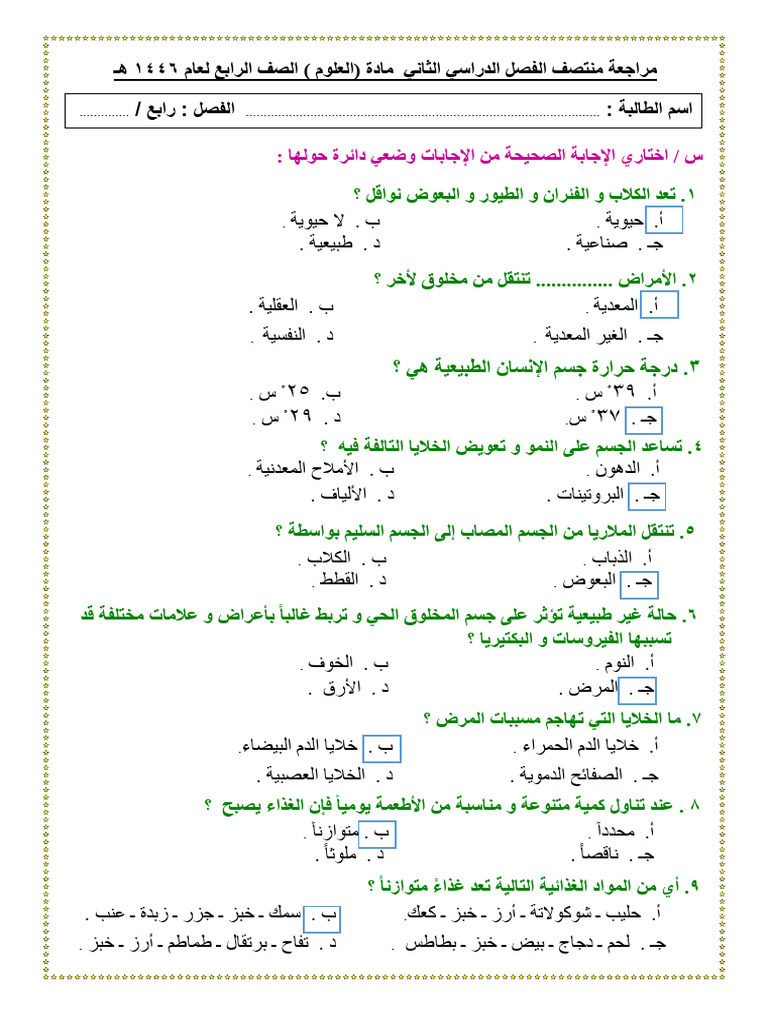 مراجعة منتصف الفصل الدراسي الثاني مادة (العلوم ) الصف الرابع لعام ١٤٤٦ هـ
اسم الطالبة : .................................................................................. الفصل : رابع / ..............
س / اختاري الإجابة الصحيحة من الإجابات وضعي دائرة حولها :
١. تعد الكلاب و الفئران و الطيور و البعوض نواقل ؟
أ. حيوية . ب . لا حيوية .
جـ . صناعية . د . طبيعية .
٢. الأمراض ............... تنتقل من مخلوق لأخر ؟
أ. المعدية . ب . العقلية .
جـ . الغير المعدية . د . النفسية .
٣. درجة حرارة جسم الإنسان الطبيعية هي ؟
أ. ٣٩ ْ س . ب. ٢٥ ْ س .
جـ . ٣٧ ْ س. د . ٢٩ ْ س .
٤. تساعد الجسم على النمو و تعويض الخلايا التالفة فيه ؟
أ. الدهون . ب . الأملاح المعدنية .
جـ . البروتينات . د . الألياف .
٥. تنتقل الملاريا من الجسم المصاب إلى الجسم السليم بواسطة ؟
أ. الذباب . ب . الكلاب .
جـ . البعوض . د . القطط .
٦. حالة غير طبيعية تؤثر على جسم المخلوق الحي و تربط غالباً بأعراض و علامات مختلفة قد
تسببها الفيروسات و البكتيريا ؟
أ. النوم . ب . الخوف .
جـ . المرض . د . الأرق .
٧. ما الخلايا التي تهاجم مسببات المرض ؟
أ. خلايا الدم الحمراء . ب . خلايا الدم البيضاء.
جـ . الصفائح الدموية . د . الخلايا العصبية .
٨ . عند تناول كمية متنوعة و مناسبة من الأطعمة يومياً فإن الغذاء يصبح ؟
أ. محدداً . ب . متوازناً .
جـ . ناقصاً . د . ملوثاً .
٩. أي من المواد الغذائية التالية تعد غذاءً متوازناً ؟
أ. حليب ـ شوكولاتة ـ أرز ـ خبز ـ كعك. ب . سمك ـ خبز ـ جزر ـ زبدة ـ عنب .
جـ . لحم ـ دجاج ـ بيض ـ خبز ـ بطاطس . د . تفاح ـ برتقال ـ طماطم ـ أرز ـ خبز .